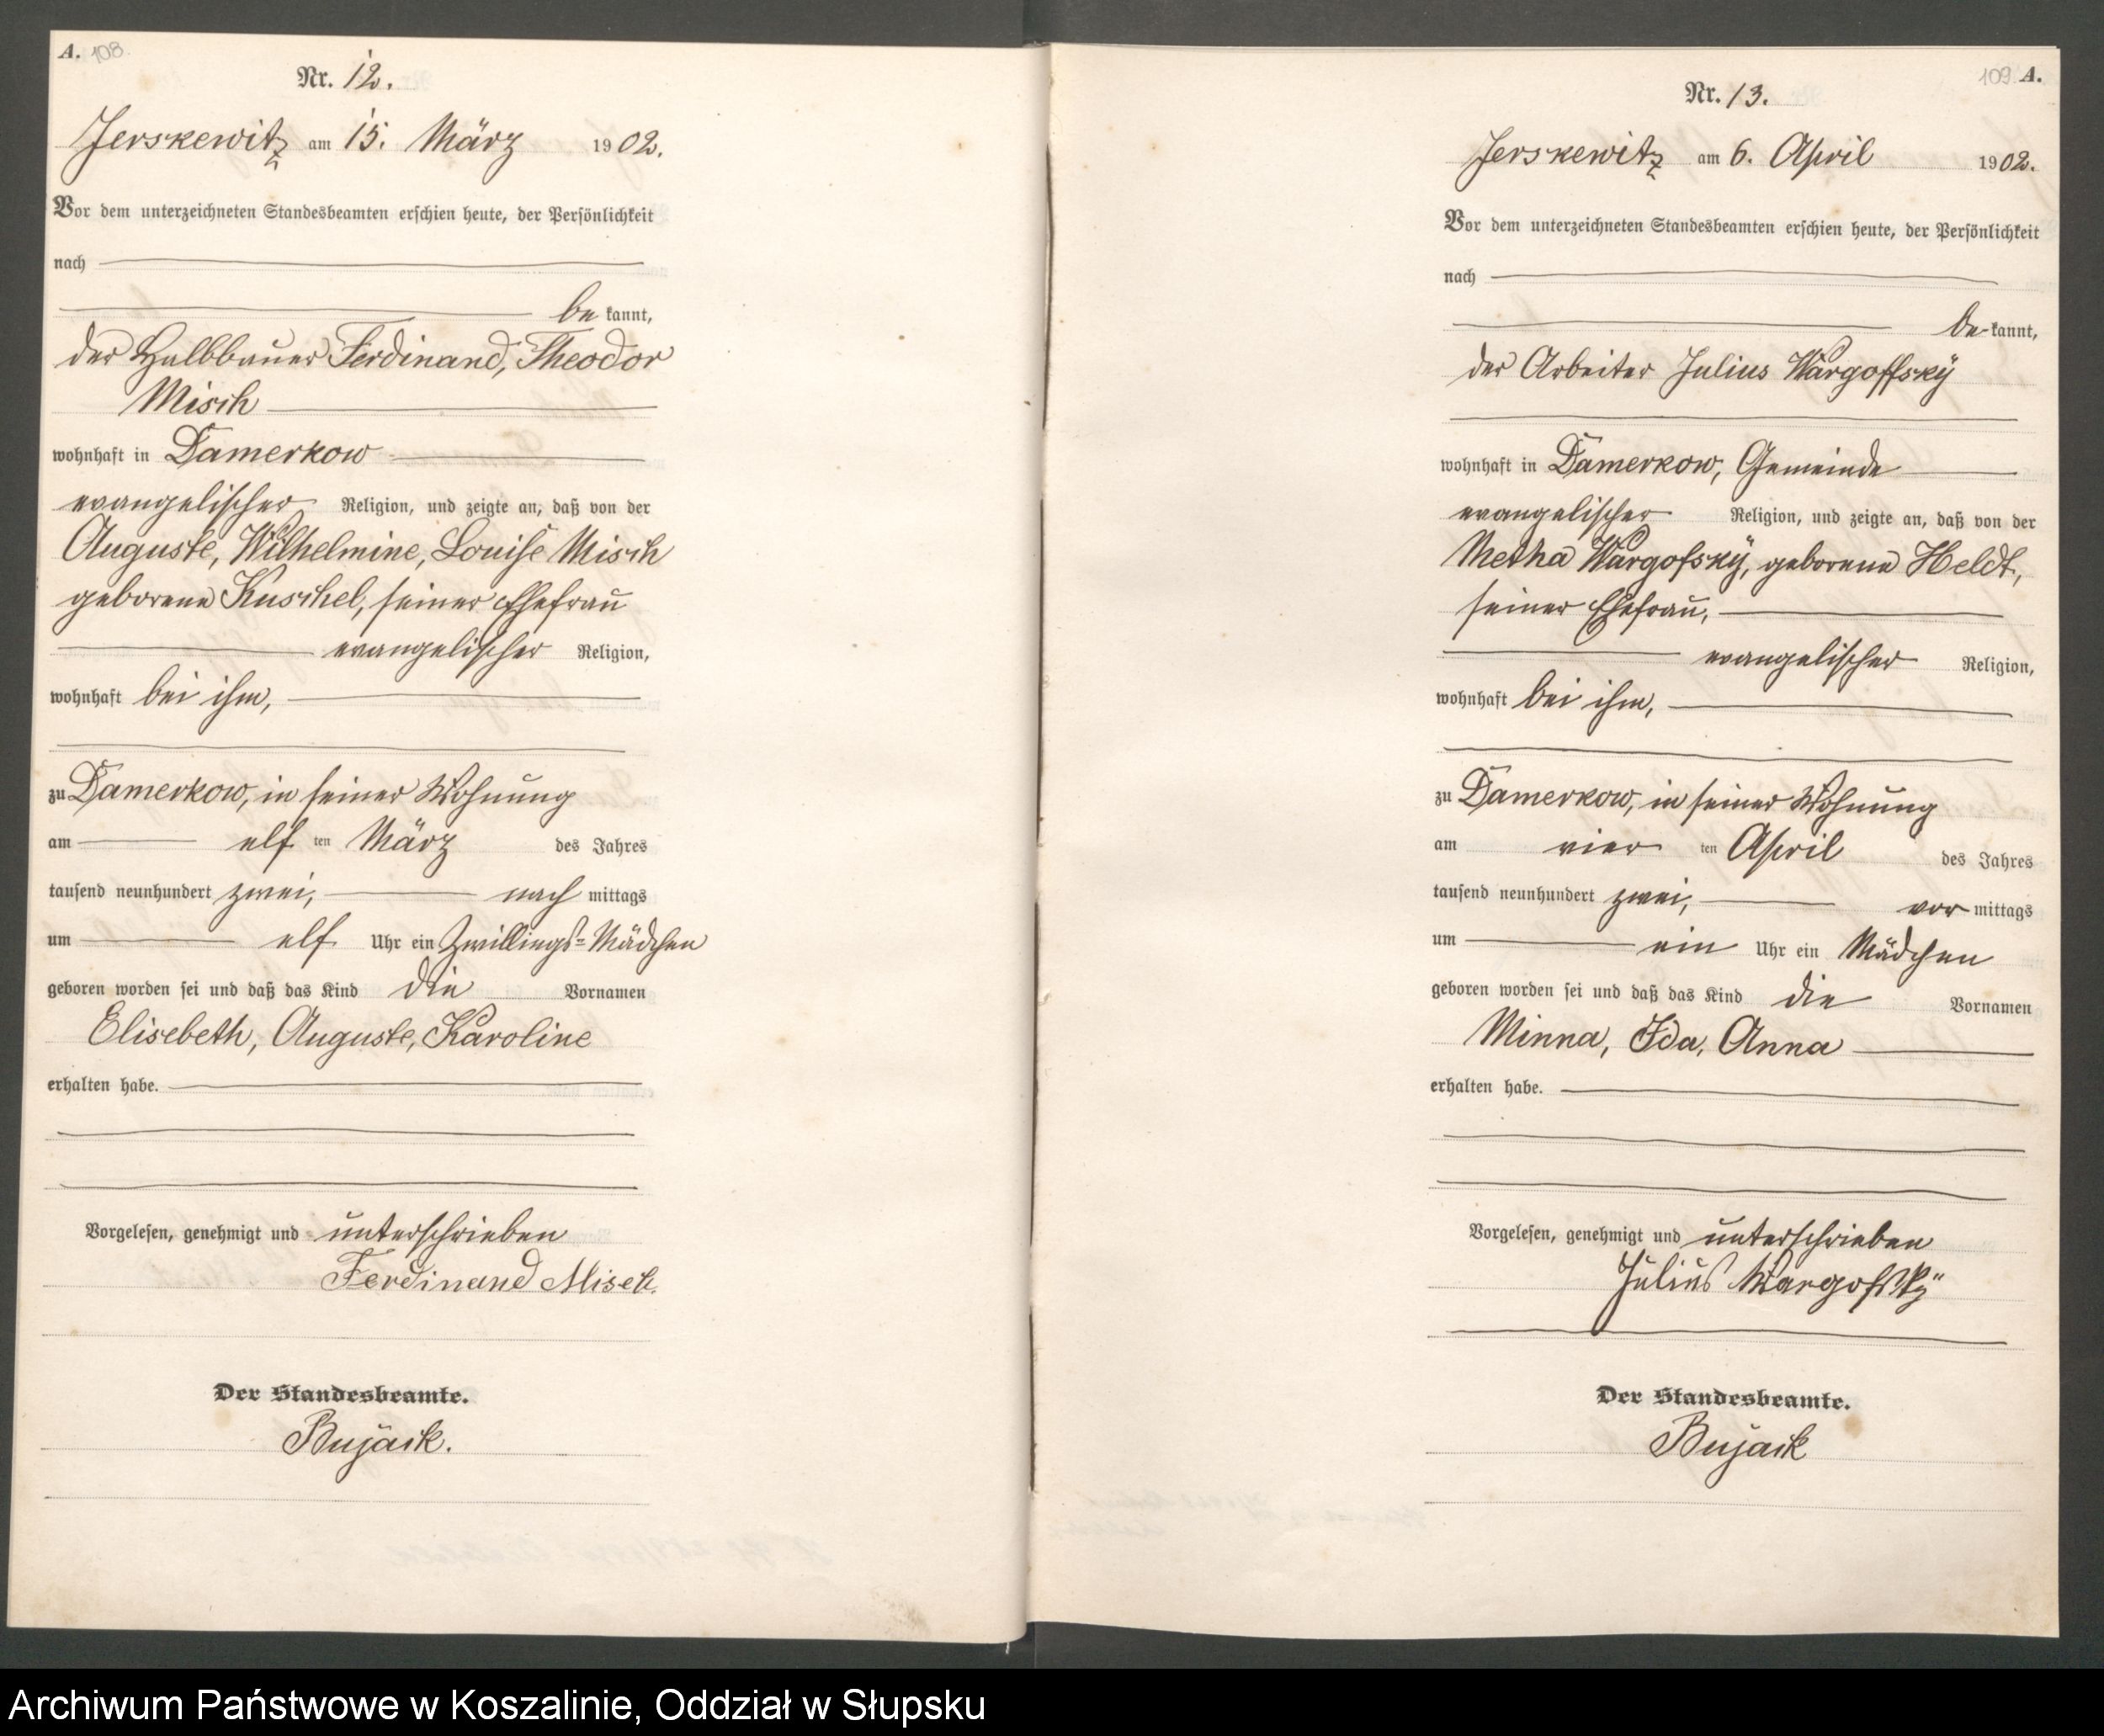 A. 108
Nr. 12.
Jerskewitz am 15. März 1902.
Vor dem unterzeichneten Standesbeamten erschien heute, der Persönlichkeit
nach
be kannt,
der Halbbauer Ferdinand, Theodor
Misch
wohnhaft in Damerkow
evangelischer Religion, und zeigte an, daß von der
Auguste, Wilhelmine, Louise Misch
geborene Kuschel, seiner Ehefrau
evangelischer Religion,
wohnhaft bei ihm,
zu Damerkow, in seiner Wohnung
am elf ten März des Jahres
tausend neunhundert zwei, nach mittags
um elf Uhr ein Zwillings-Mädchen
geboren worden sei und daß das Kind die Vornamen
Elisebeth, Auguste, Karoline
erhalten habe.
Vorgelesen, genehmigt und unterschrieben
Ferdinand Misch.
Der Standesbeamte.
Bujack.
109 A.
Nr. 13.
Jerskewitz am 6. April 1902.
Vor dem unterzeichneten Standesbeamten erschien heute, der Persönlichkeit
nach
be-kannt,
der Arbeiter Julius Wargoffsky
wohnhaft in Damerkow, Gemeinde
evangelischer Religion, und zeigte an, daß von der
Metha Wargofsky, geborene Heldt,
seiner Ehefrau,
evangelischer Religion,
wohnhaft bei ihm,
zu Damerkow, in seiner Wohnung
am vier ten April des Jahres
tausend neunhundert zwei, vor mittags
um ein Uhr ein Mädchen
geboren worden sei und daß das Kind die Vornamen
Minna, Ida, Anna
erhalten habe.
Vorgelesen, genehmigt und unterschrieben
Julius Wargofsky
Der Standesbeamte.
Bujack
Archiwum Państwowe w Koszalinie, Oddział w Słupsku